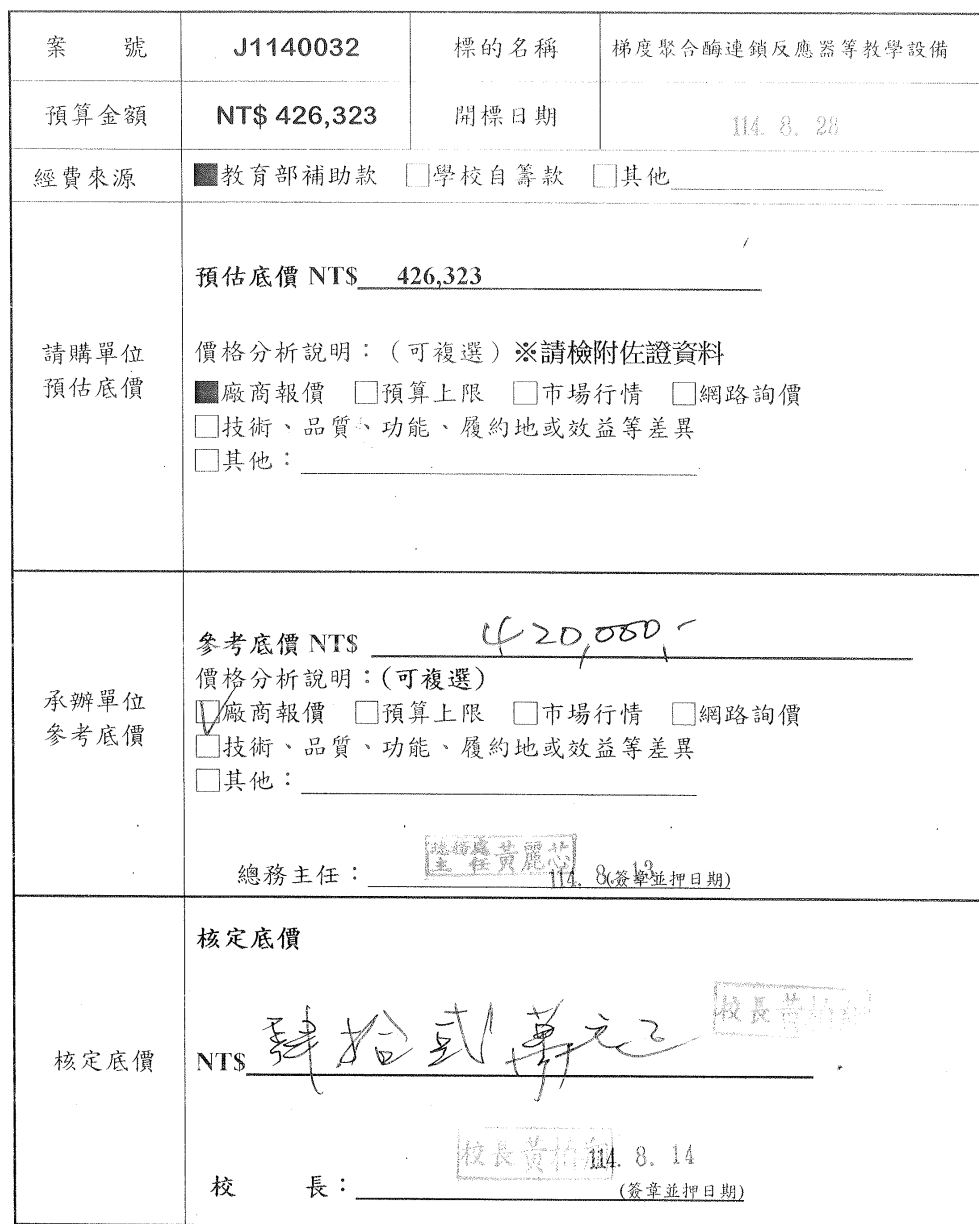 案 號 J1140032 標的名稱 梯度聚合酶連鎖反應器等教學設備
預算金額 NT$ 426,323 開標日期 114. 8. 28
經費來源 ■教育部補助款 □學校自籌款 □其他
預估底價 NT$ 426,323
請購單位
預估底價
價格分析說明：（可複選）※請檢附佐證資料
■廠商報價 □預算上限 □市場行情 □網路詢價
□技術、品質、功能、履約地或效益等差異
□其他：
參考底價 NT$ 420,000,-
承辦單位
參考底價
價格分析說明：(可複選)
☑廠商報價 □預算上限 □市場行情 □網路詢價
□技術、品質、功能、履約地或效益等差異
□其他：
總務主任： 總務處主任黃麗芯 114. 8. 13 (簽章並押日期)
核定底價
核定底價
NT$ 肆拾貳萬元 校長黃柏
校 長： 校長黃柏 114. 8. 14
(簽章並押日期)